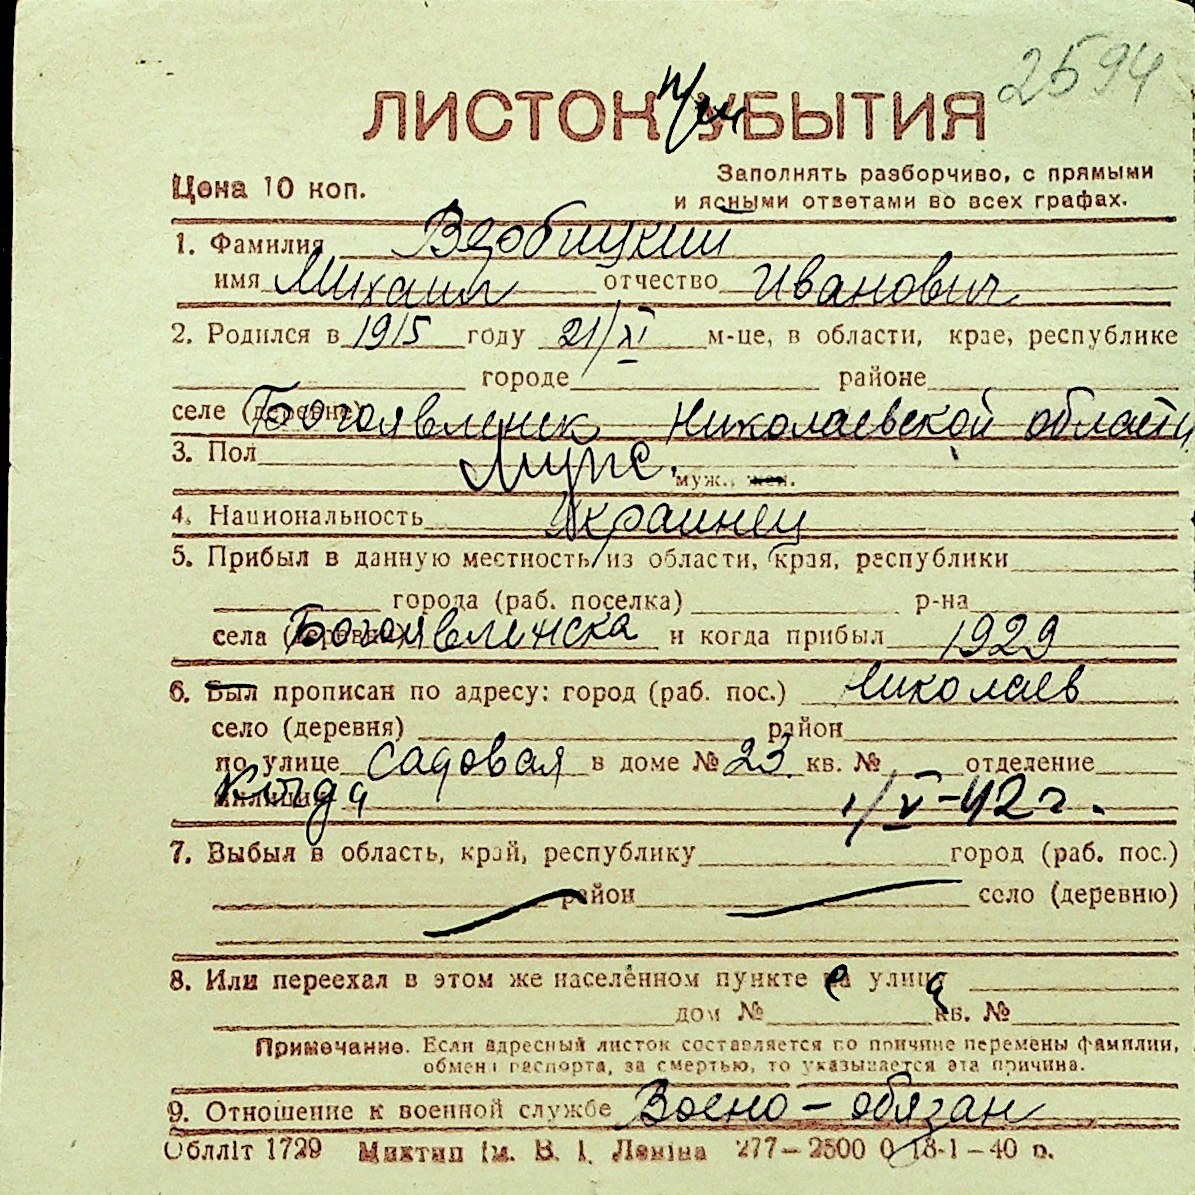 2594
ЛИСТОК УБЫТИЯ
Цена 10 коп.
Заполнять разборчиво, с прямыми
и ясными ответами во всех графах.
1. Фамилия Вербицкий
имя Михаил отчество Иванович
2. Родился в 1915 году 21/XI м-це, в области, крае, республике
городе районе
селе (деревне) Богоявленск Николаевской области
3. Пол Мужс. муж., жен.
4. Национальность Украинец
5. Прибыл в данную местность из области, края, республики
города (раб. поселка) р-на
села (деревни) Богоявленска и когда прибыл 1929
6. Был прописан по адресу: город (раб. пос.) Николаев
село (деревня) район
по улице Садовая в доме № 23 кв. № отделение
милиции Когда 1/V-42 г.
7. Выбыл в область, край, республику город (раб. пос.)
район село (деревню)
8. Или переехал в этом же населённом пункте улица
дом № кв. №
Примечание. Если адресный листок составляется по причине перемены фамилии,
обмена паспорта, за смертью, то указывается эта причина.
9. Отношение к военной службе Воено-обязан
Обллiт 1729 Миктип iм. В. I. Ленiна 277—2500 0 18-1—40 р.